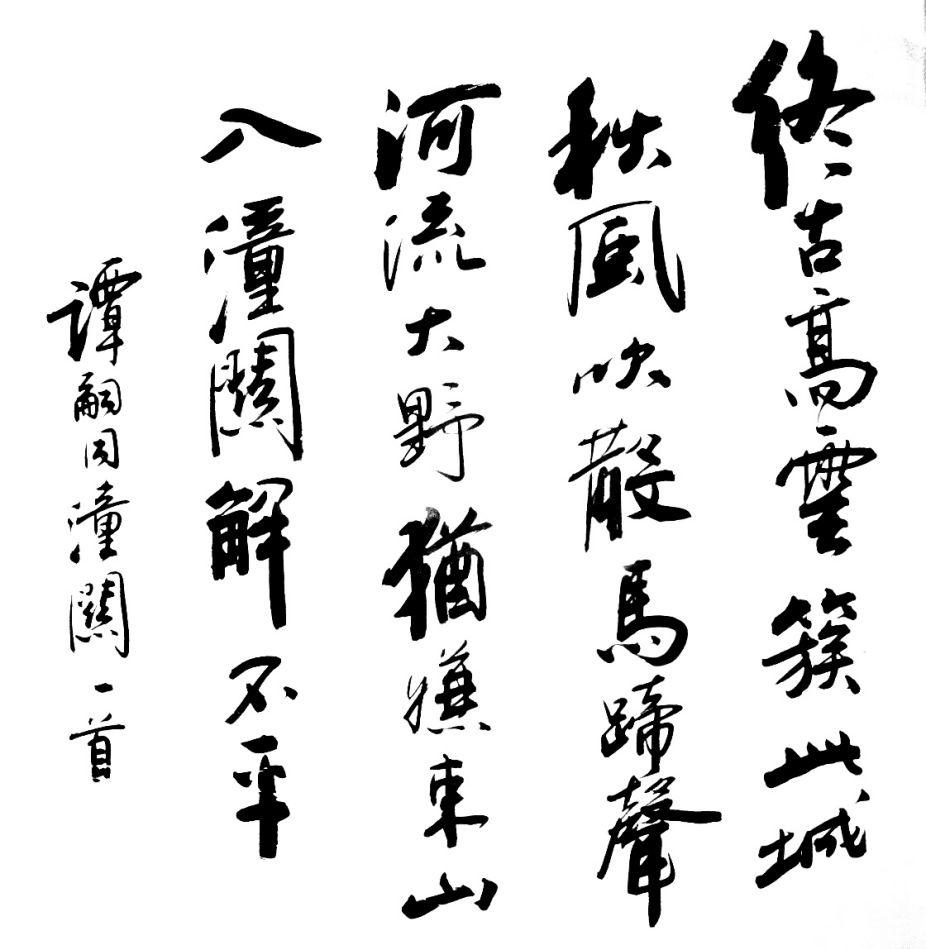 終古高雲簇此城
秋風吹散馬蹄聲
河流大野猶嫌束山
入潼關解不平
譚嗣同潼關一首